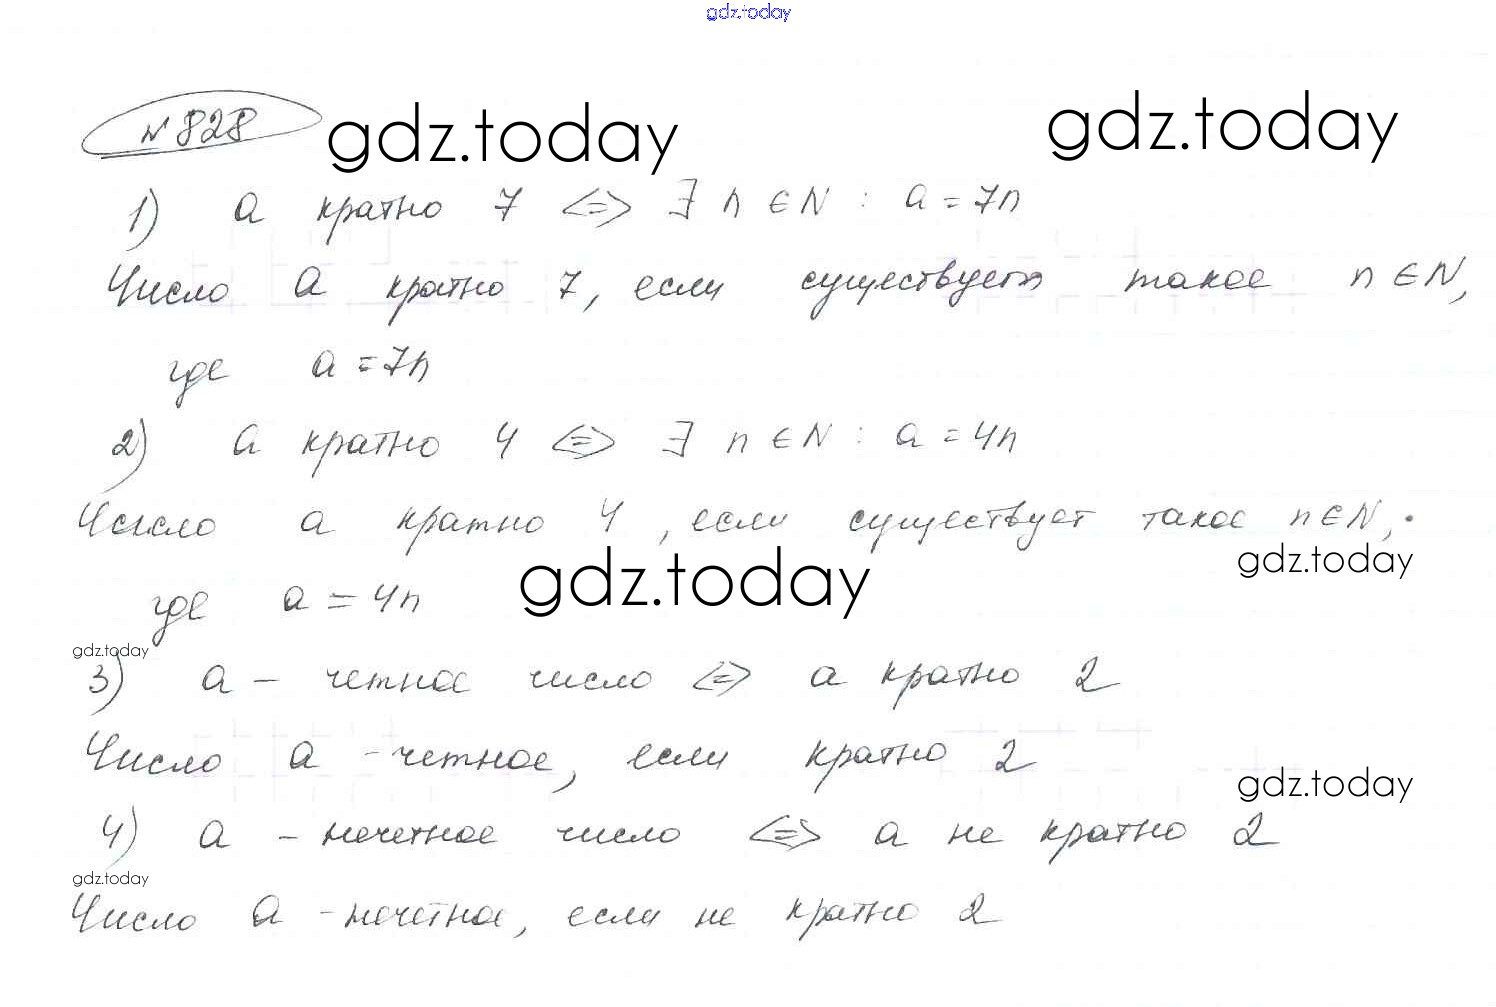 gdz.today
№ 828 gdz.today gdz.today
1) a кратно 7 <=> ∃ n ∈ N : a = 7n
Число a кратно 7, если существует такое n ∈ N,
где a = 7n
2) a кратно 4 <=> ∃ n ∈ N : a = 4n
Число a кратно 4, если существует такое n ∈ N,
gdz.today gdz.today
где a = 4n
gdz.today
3) a – четное число <=> a кратно 2
Число a - четное, если кратно 2
gdz.today
4) a – нечетное число <=> a не кратно 2
gdz.today
Число a - нечетное, если не кратно 2